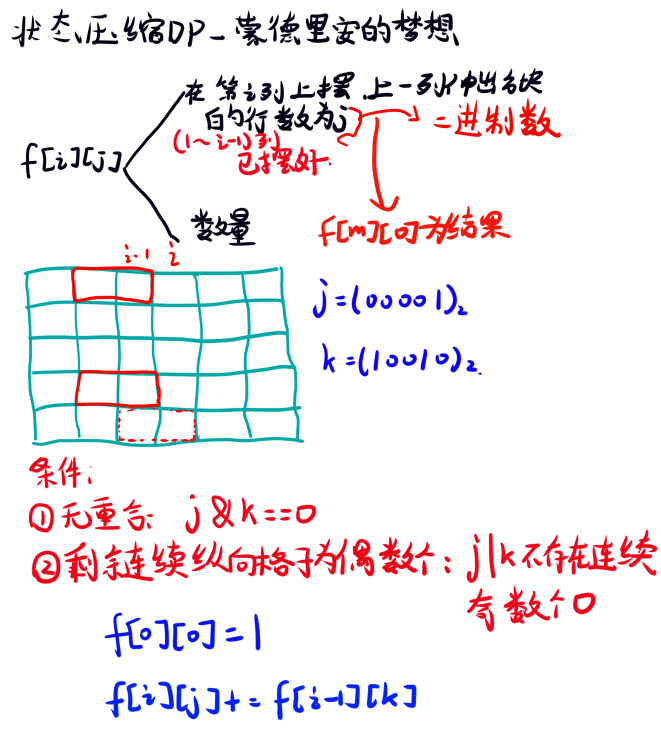 状态压缩DP-蒙德里安的梦想
在第i列上摆,上一列伸出各块
的行数为j
二进制数
(1~i-1)列
已摆好.
f[i][j]
数量
f[m][0]为结果
i-1 i
j=(00001)₂
k=(10010)₂.
条件:
①无重合: j&k==0
②剩余连续纵向格子为偶数个: j|k不存在连续
奇数个0
f[0][0]=1
f[i][j]+=f[i-1][k]